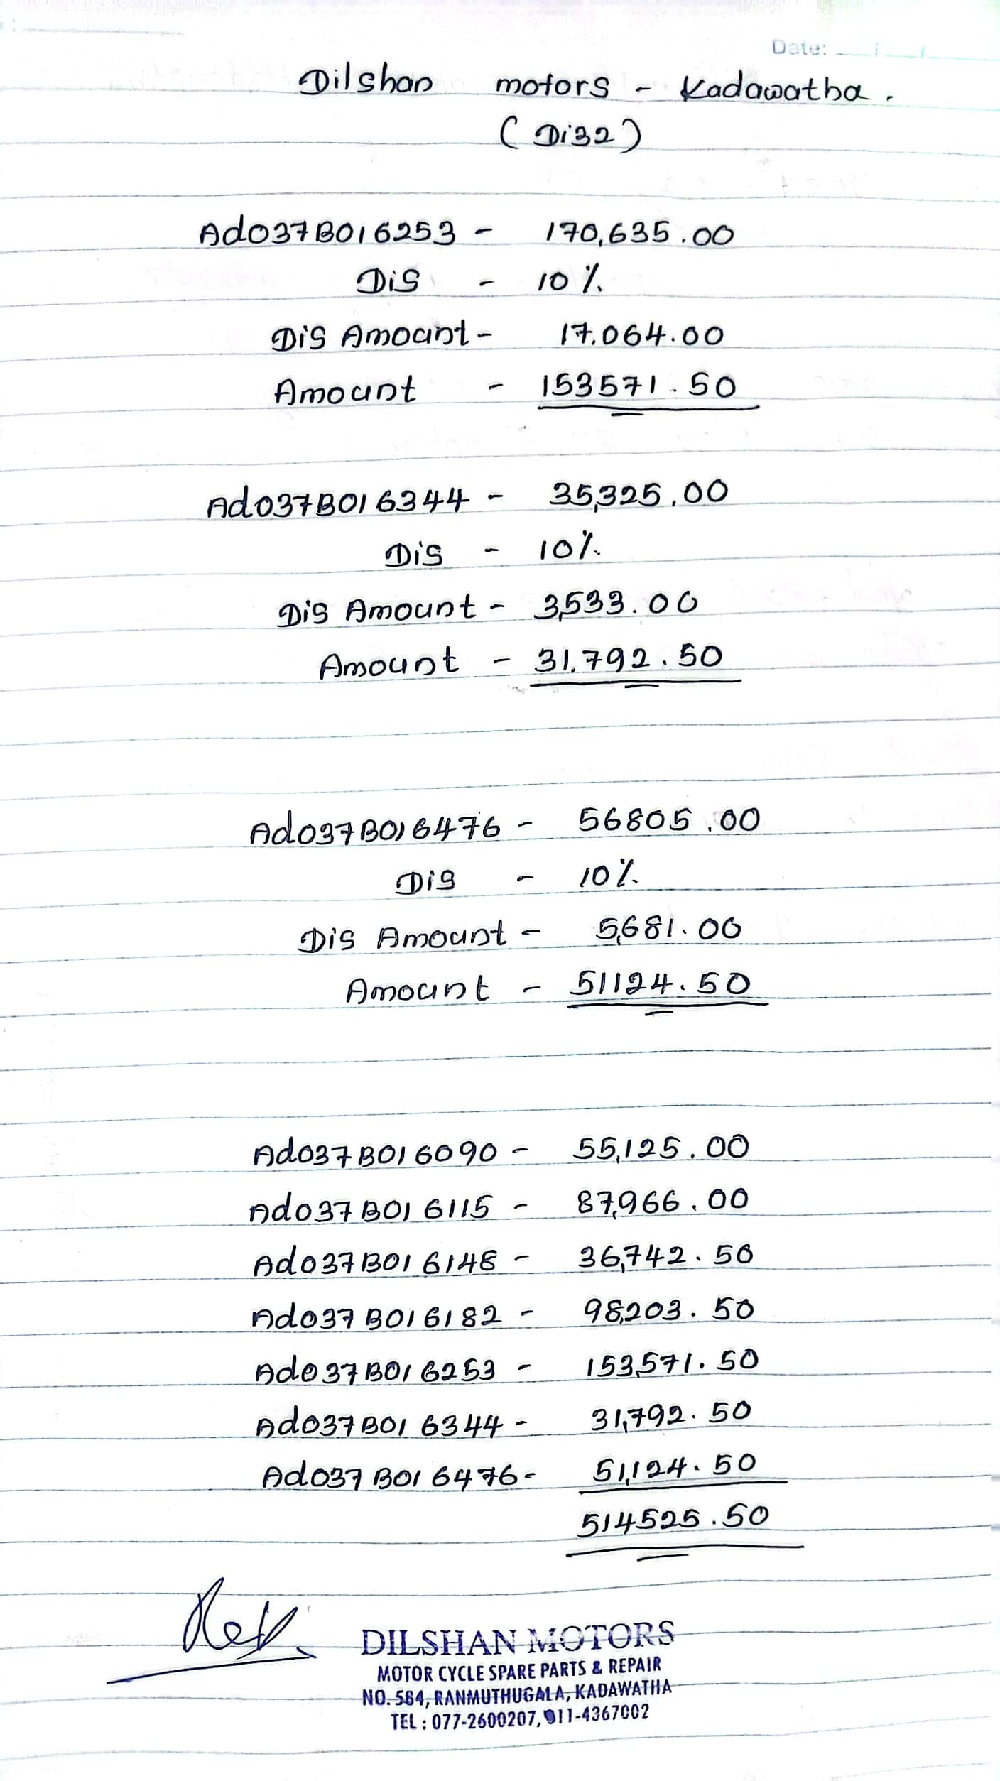 Date:
Dilshan motors - Kadawatha.
(Di32)
Ad037B016253 - 170,635.00
Dis - 10%
Dis Amount - 17.064.00
Amount - 153571.50
Ad037B016344 - 35,325.00
Dis - 10%
Dis Amount - 3,533.00
Amount - 31.792.50
Ad037B016476 - 56805.00
Dis - 10%
Dis Amount - 5,681.00
Amount - 51124.50
Ad037B016090 - 55,125.00
Ad037B016115 - 87,966.00
Ad037B016148 - 36,742.50
Ad037B016182 - 98,203.50
Ad037B016253 - 153,571.50
Ad037B016344 - 31,792.50
Ad037B016476 - 51,124.50
514525.50
DILSHAN MOTORS
MOTOR CYCLE SPARE PARTS & REPAIR
NO. 584, RANMUTHUGALA, KADAWATHA
TEL : 077-2600207, 011-4367002